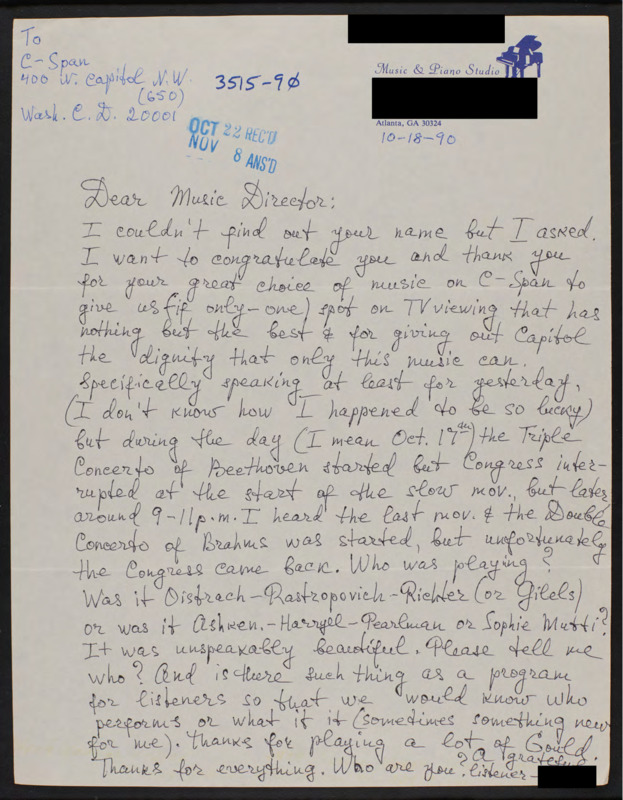 To
C-Span
400 N. Capitol N.W.
(650)
Wash. C. D. 20001
3515-90
OCT 22 REC'D
NOV 8 ANS'D
Music & Piano Studio
Atlanta, GA 30324
10-18-90
Dear Music Director:
I couldn't find out your name but I asked.
I want to congratulate you and thank you
for your great choice of music on C-Span to
give us (if only-one) spot on TV viewing that has
nothing but the best & for giving out Capitol
the dignity that only this music can.
Specifically speaking at least for yesterday,
(I don't know how I happened to be so lucky)
but during the day (I mean Oct. 17th) the Triple
Concerto of Beethoven started but Congress inter-
rupted at the start of the slow mov., but later
around 9-11 p.m. I heard the last mov. & the Double
Concerto of Brahms was started, but unfortunately
the Congress came back. Who was playing?
Was it Oistrach-Rastropovich-Richter (or Gilels)
or was it Ashken.-Harryel-Pearlman or Sophie Mutti?
It was unspeakably beautiful. Please tell me
who? And is there such thing as a program
for listeners so that we would know who
performs or what it it (sometimes something new
for me). Thanks for playing a lot of Gould.
Thanks for everything. Who are you? A grateful
listener-